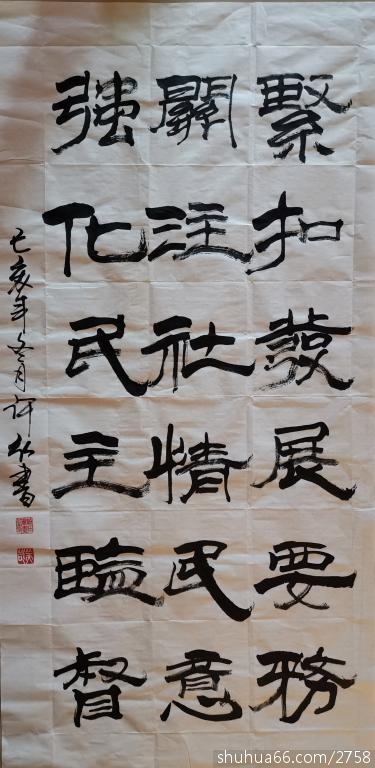 緊扣發展要務
關注社情民意
強化民主監督
己亥年冬月許
書
shuhua66.com/2758